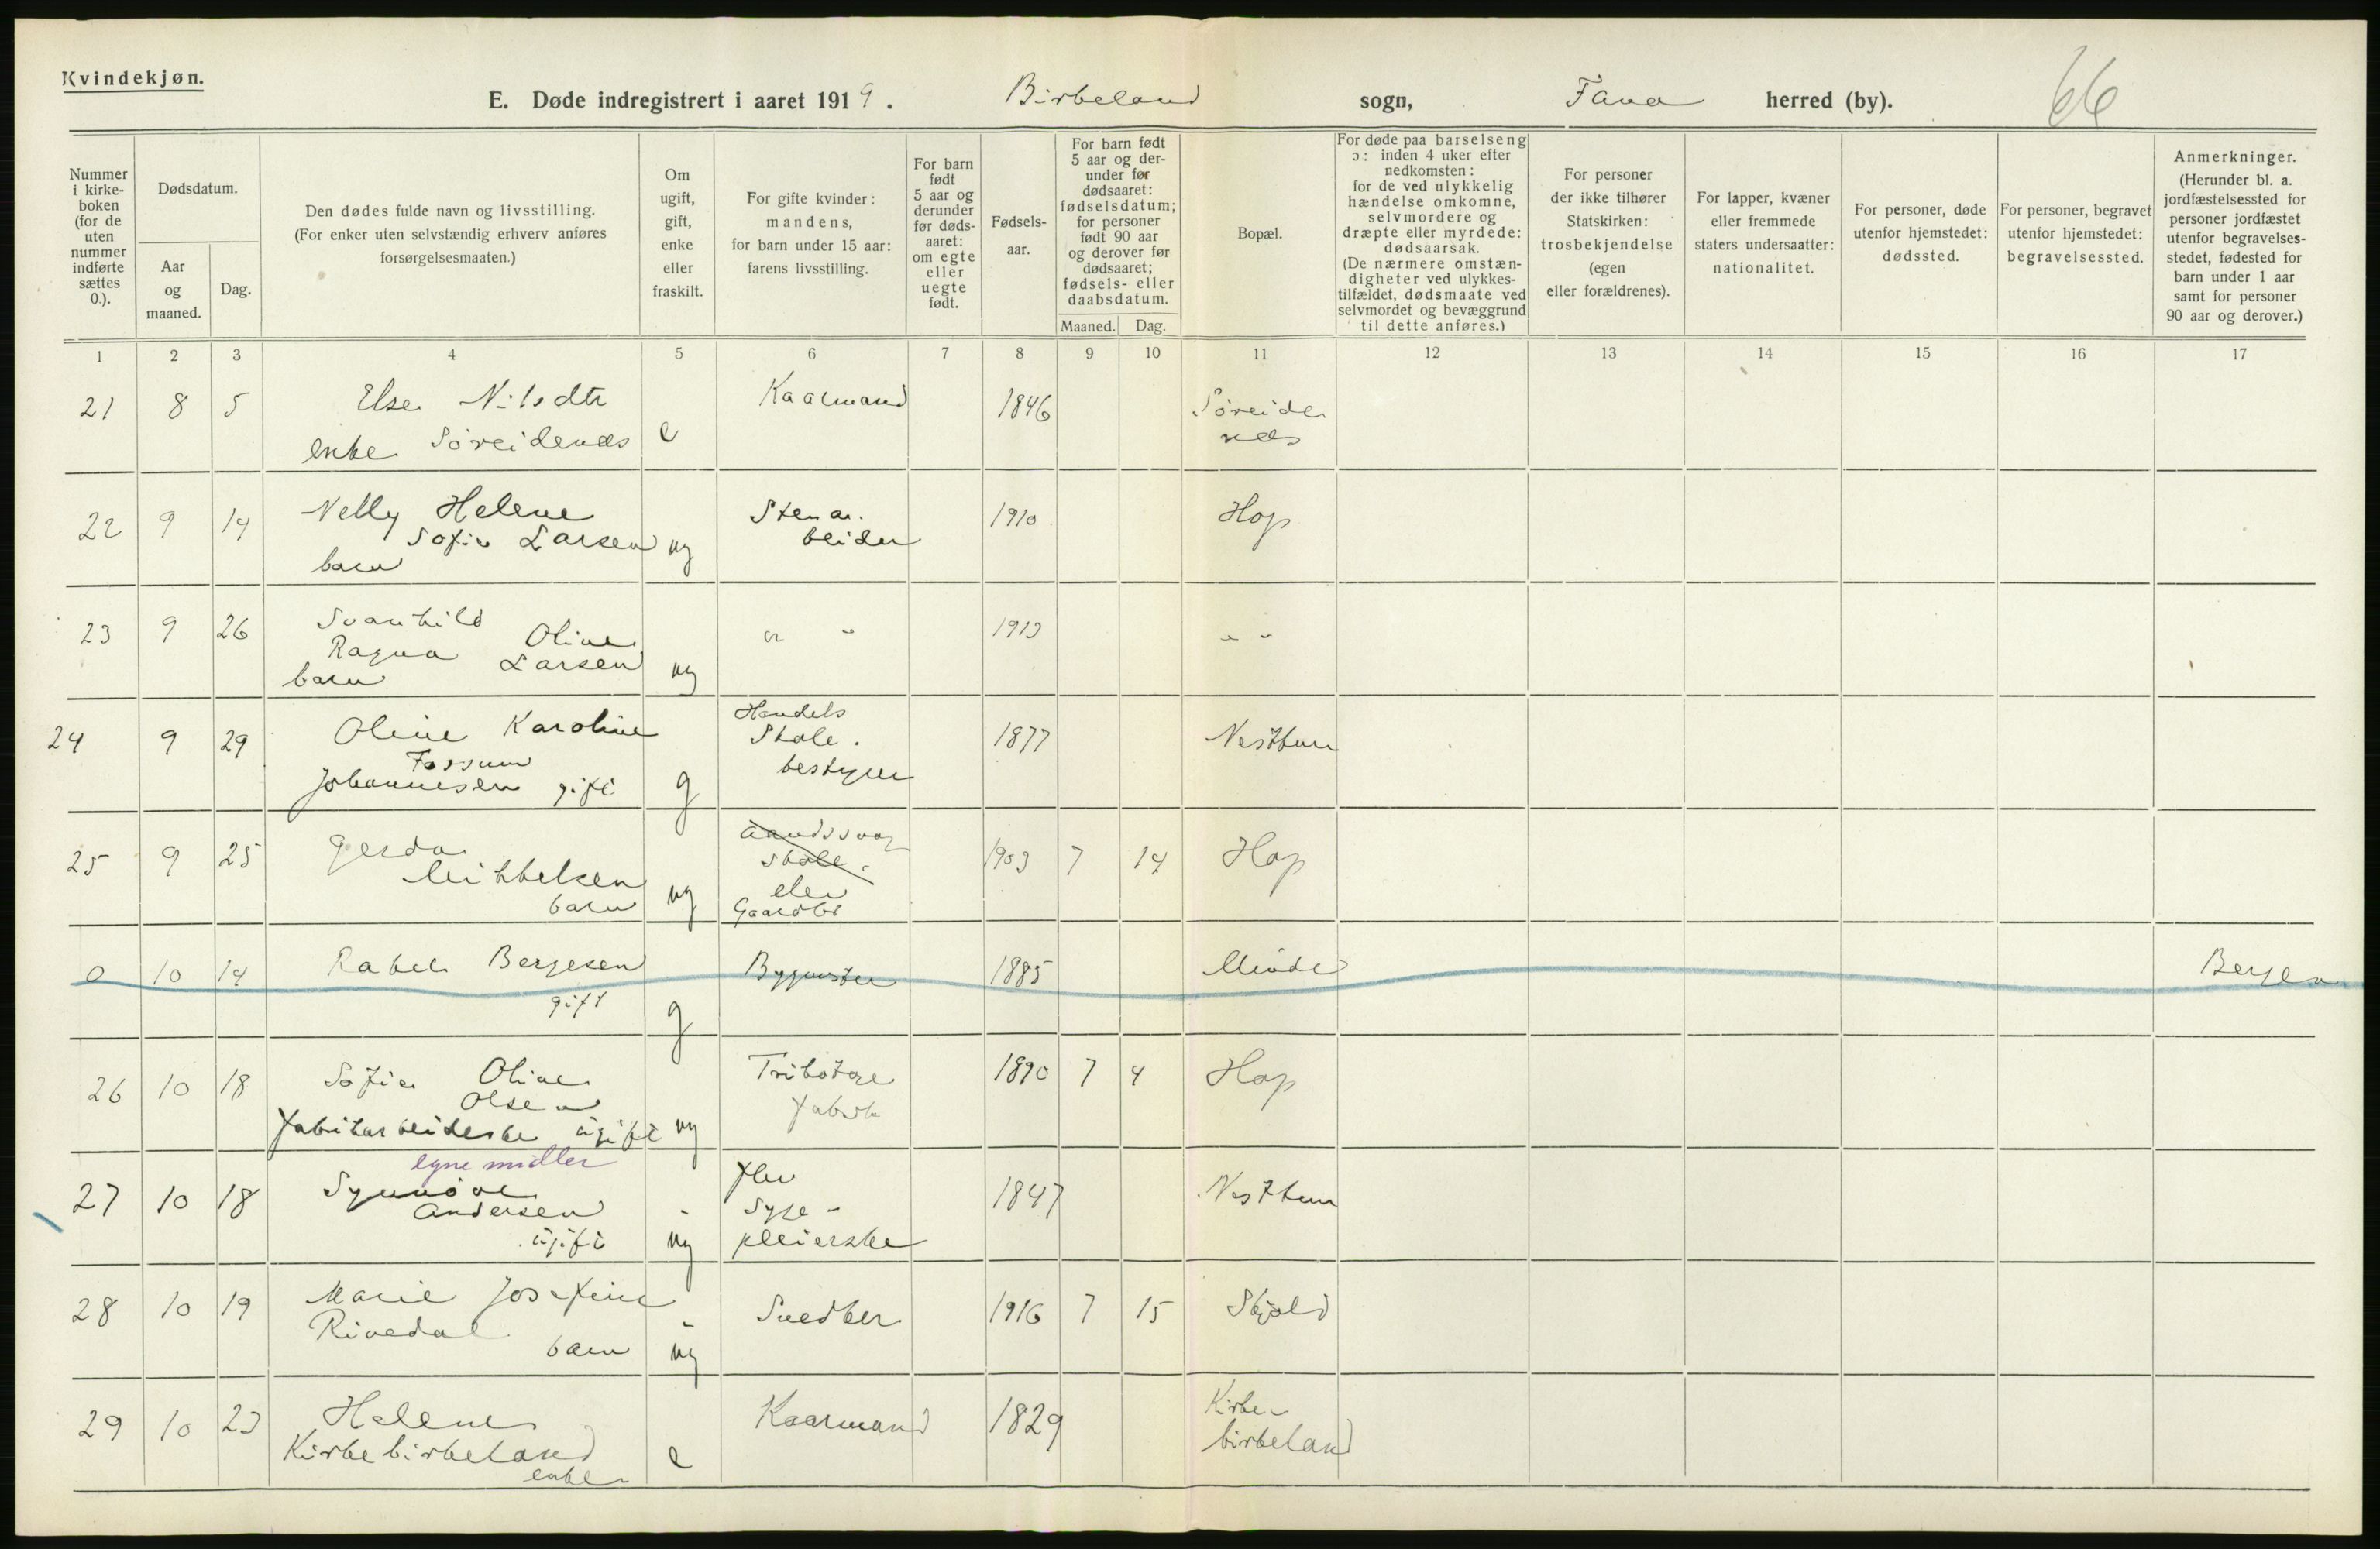 Kvindekjøn.
E. Døde indregistrert i aaret 1919. Birkeland sogn, Fana herred (by). 66
Nummer
i kirke-
boken
(for de
uten
nummer
indførte
sættes
0.).
Dødsdatum.
Aar
og
maaned.
Dag.
Den dødes fulde navn og livsstilling.
(For enker uten selvstændig erhverv anføres
forsørgelsesmaaten.)
Om
ugift,
gift,
enke
eller
fraskilt.
For gifte kvinder:
mandens,
for barn under 15 aar:
farens livsstilling.
For barn
født
5 aar og
derunder
før døds-
aaret:
om egte
eller
uegte
født.
Fødsels-
aar.
For barn født
5 aar og der-
under før
dødsaaret:
fødselsdatum;
for personer
født 90 aar
og derover før
dødsaaret;
fødsels- eller
daabsdatum.
Maaned. Dag.
Bopæl.
For døde paa barselseng
ɔ: inden 4 uker efter
nedkomsten:
for de ved ulykkelig
hændelse omkomne,
selvmordere og
dræpte eller myrdede:
dødsaarsak.
(De nærmere omstæn-
digheter ved ulykkes-
tilfældet, dødsmaate ved
selvmordet og bevæggrund
til dette anføres.)
For personer
der ikke tilhører
Statskirken:
trosbekjendelse
(egen
eller forældrenes).
For lapper, kvæner
eller fremmede
staters undersaatter:
nationalitet.
For personer, døde
utenfor hjemstedet:
dødssted.
For personer, begravet
utenfor hjemstedet:
begravelsessted.
Anmerkninger.
(Herunder bl. a.
jordfæstelsessted for
personer jordfæstet
utenfor begravelses-
stedet, fødested for
barn under 1 aar
samt for personer
90 aar og derover.)
1 2 3 4 5 6 7 8 9 10 11 12 13 14 15 16 17
21 8 5 Else Nilsdtr Kaarmand 1846 Søreide
enke Søreidenæs e næs
22 9 14 Nelly Helene Stenar. 1910 Hop
Sofie Larsen ug beider
barn
23 9 26 Svanhild Oline " " 1913 " "
Ragna Larsen ug
barn
24 9 29 Oline Karoline Handels 1877 Nesttun
Fossum Skole.
Johannesen gift g bestyrer
25 9 25 Gerda Aandssvag 1903 7 14 Hop
Mikkelsen skole.
barn ug elev
Gaardbr
0 10 14 Rakel Bergesen Bygmster 1885 Minde Bergen
gift g
26 10 18 Sofie Oline Trikotage 1890 7 4 Hop
Olsen fabrik
Fabrikarbeiderske ugift ug
egne midler
27 10 18 Synnøve fhv 1847 Nesttun
Andersen Syge-
ugift ug pleierske
28 10 19 Marie Josefine Snedker 1916 7 15 Skjold
Rivedal barn ug
29 10 23 Helene Kaarmand 1829 Kirke
Kirkebirkeland birkeland
enke e